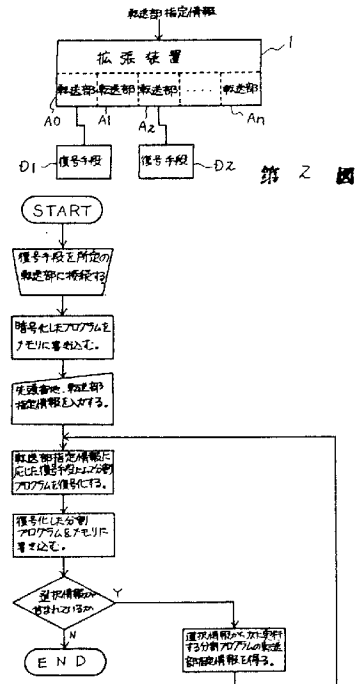 転送部指定情報
拡張装置
1
転送部 転送部 転送部 ・・・・ 転送部
A0 A1 A2 An
D1 復号手段 復号手段 D2
第2図
START
復号手段を所定の
転送部に接続する
暗号化したプログラムを
メモリに書き込む。
先頭番地、転送部
指定情報を入力する。
転送部指定情報に
応じた復号手段によって分割
プログラムを復号化する。
復号化した分割
プログラムをメモリに
書き込む。
選択情報が
含まれているか
Y
N
選択情報から、次に実行
する分割プログラムの転送
部指定情報を得る。
END